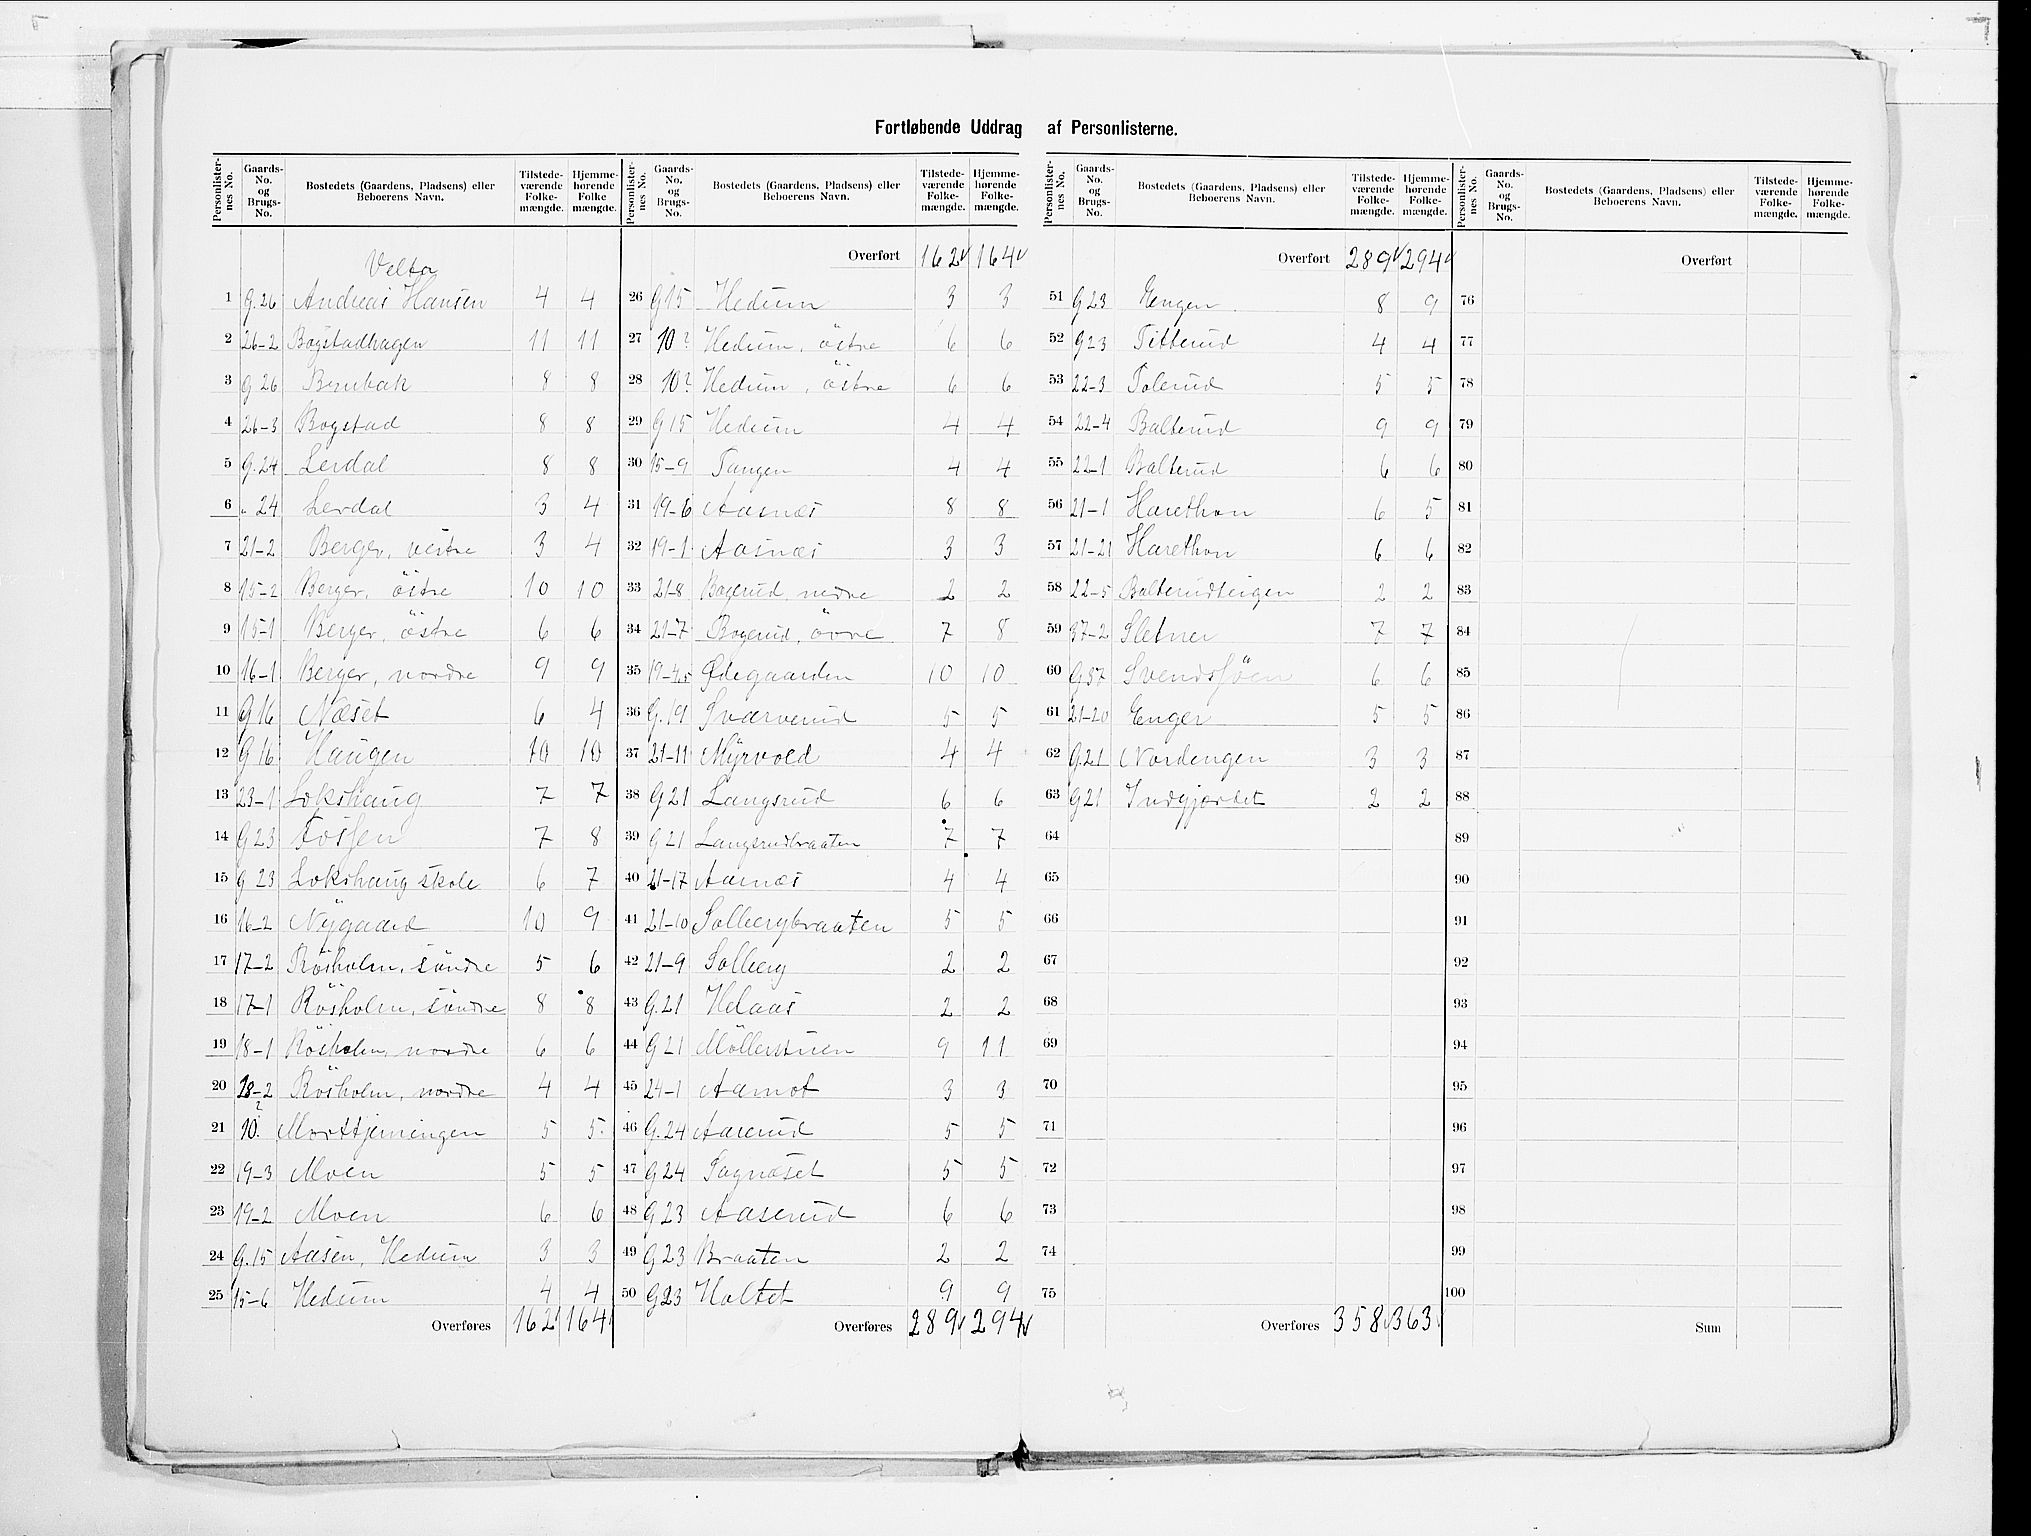 Fortløbende Uddrag af Personlisterne.
Personlisternes No. | Gaards-No. og Brugs-No. | Bostedets (Gaardens, Pladsens) eller Beboerens Navn. | Tilstedeværende Folkemængde. | Hjemmehørende Folkemængde.
Velta
1 G.26 Andreas Hansen 4 4
2 26-2 Bogstadhagen 11 11
3 G 26 Brubak 8 8
4 26-3 Bogstad 8 8
5 G.24 Lerdal 8 8
6 „ 24 Lerdal 3 4
7 21-2 Berger, vestre 3 4
8 15-2 Berger, östre 10 10
9 15-1 Berger, östre 6 6
10 16-1 Berger, nordre 9 9
11 G 16 Næset 6 4
12 G 16 Haugen 10 10
13 23-1 Lokshaug 7 7
14 G 23 Fossen 7 8
15 G 23 Lokshaug skole 6 7
16 16-2 Nygaard 10 9
17 17-2 Rösholm, söndre 5 6
18 17-1 Rösholm, söndre 8 8
19 18-1 Rösholm, nordre 6 6
20 18-2 Rösholm, nordre 4 4
21 10? Morttjerningen 5 5
22 19-3 Moen 5 5
23 19-2 Moen 6 6
24 G.15 Aasen, Hedum 3 3
25 15-6 Hedum 4 4
Overføres 162 164
Personlisternes No. | Gaards-No. og Brugs-No. | Bostedets (Gaardens, Pladsens) eller Beboerens Navn. | Tilstedeværende Folkemængde. | Hjemmehørende Folkemængde.
Overført 162 164
26 G 15 Hedum 3 3
27 10? Hedum, östre 6 6
28 10? Hedum, östre 6 6
29 G 15 Hedum 4 4
30 15-9 Tangen 4 4
31 19-6 Aasnæs 8 8
32 19-1 Aasnæs 3 3
33 21-8 Bogerud, nedre 2 2
34 21-7 Bogerud, övre 7 8
35 19-4,5 Ødegaarden 10 10
36 G.19 Sværverud 5 5
37 21-11 Myrvold 4 4
38 G 21 Langsrud 6 6
39 G 21 Langsrudbraaten 7 7
40 21-17 Aasnæs 4 4
41 21-10 Solbergbraaten 5 5
42 21-9 Solberg 2 2
43 G.21 Helaas 2 2
44 G 21 Möllerstuen 9 11
45 24-1 Aamot 3 3
46 G.24 Aaserud 5 5
47 G 24 Sagnæset 5 5
48 G 23 Aaserud 6 6
49 G 23 Braaten 2 2
50 G 23 Holtet 9 9
Overføres 289 294
Personlisternes No. | Gaards-No. og Brugs-No. | Bostedets (Gaardens, Pladsens) eller Beboerens Navn. | Tilstedeværende Folkemængde. | Hjemmehørende Folkemængde.
Overført 289 294
51 G 23 Engen 8 9
52 G 23 Titterud 4 4
53 22-3 Tolerud 5 5
54 22-4 Balterud 9 9
55 22-1 Balterud 6 6
56 21-1 Harethon 6 5
57 21-21 Harethon 6 6
58 22-5 Balterudteigen 2 2
59 37-2 Sletner 7 7
60 G 37 Svendsjöen 6 6
61 21-20 Enger 5 5
62 G.21 Nordengen 3 3
63 G 21 Indgjærdet 2 2
64
65
66
67
68
69
70
71
72
73
74
75
Overføres 358 363
Personlisternes No. | Gaards-No. og Brugs-No. | Bostedets (Gaardens, Pladsens) eller Beboerens Navn. | Tilstedeværende Folkemængde. | Hjemmehørende Folkemængde.
Overført
76
77
78
79
80
81
82
83
84
85
86
87
88
89
90
91
92
93
94
95
96
97
98
99
100
Sum